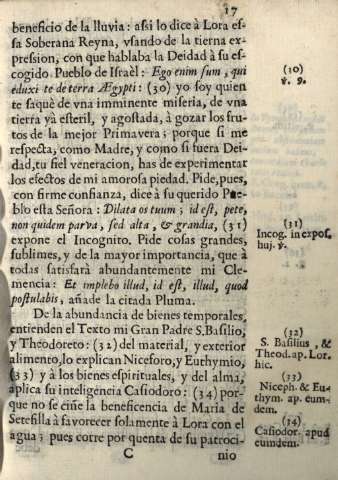 17
beneficio de la lluvia: assi lo dice à Lora es-
sa Soberana Reyna, vsando de la tierna ex-
pression, con que hablaba la Deidad à su es-
cogido Pueblo de Israèl: Ego enim sum, qui
eduxi te de terra Ægypti: (30) yo soy quien
te saquè de vna imminente miseria, de vna
tierra yà esteril, y agostada, à gozar los fru-
tos de la mejor Primavera; porque si me
respeta, como Madre, y como si fuera Dei-
dad, tu fiel veneracion, has de experimentar
los efectos de mi amorosa piedad. Pide, pues,
con firme confianza, dice à su querido Pue-
blo esta Señora: Dilata os tuum; id est, pete,
non quidem parva, sed alta, & grandia, (31)
expone el Incognito. Pide cosas grandes,
sublimes, y de la mayor importancia, que à
todas satisfarà abundantemente mi Cle-
mencia: Et implebo illud, id est, illud, quod
postulabis, añade la citada Pluma.
De la abundancia de bienes temporales,
entienden el Texto mi Gran Padre S. Basilio,
y Theodoreto: (32) del material, y exterior
alimento, lo explican Niceforo, y Euthymio,
(33) y à los bienes espirituales, y del alma,
aplica su inteligencia Casiodoro: (34) por-
que no se ciñe la beneficencia de Maria de
Setefilla à favorecer solamente à Lora con el
agua; pues corre por quenta de su patroci-
C
nio
(30)
℣. 9.
(31)
Incog. in expos.
huj. ℣.
(32)
S. Basilius, &
Theod. ap. Lor.
hic.
(33)
Niceph. & Eu-
thym. ap. eum-
dem.
(34)
Casiodor. apud
eumdem.